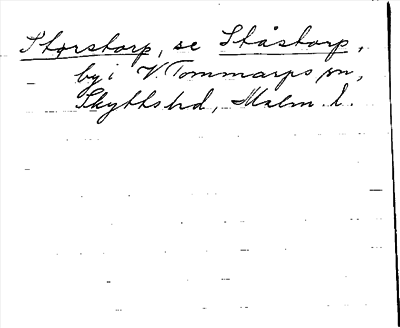 Storstorp, se Ståstorp,
by i V. Tommarps sn,
Skytts hd, Malm. l.